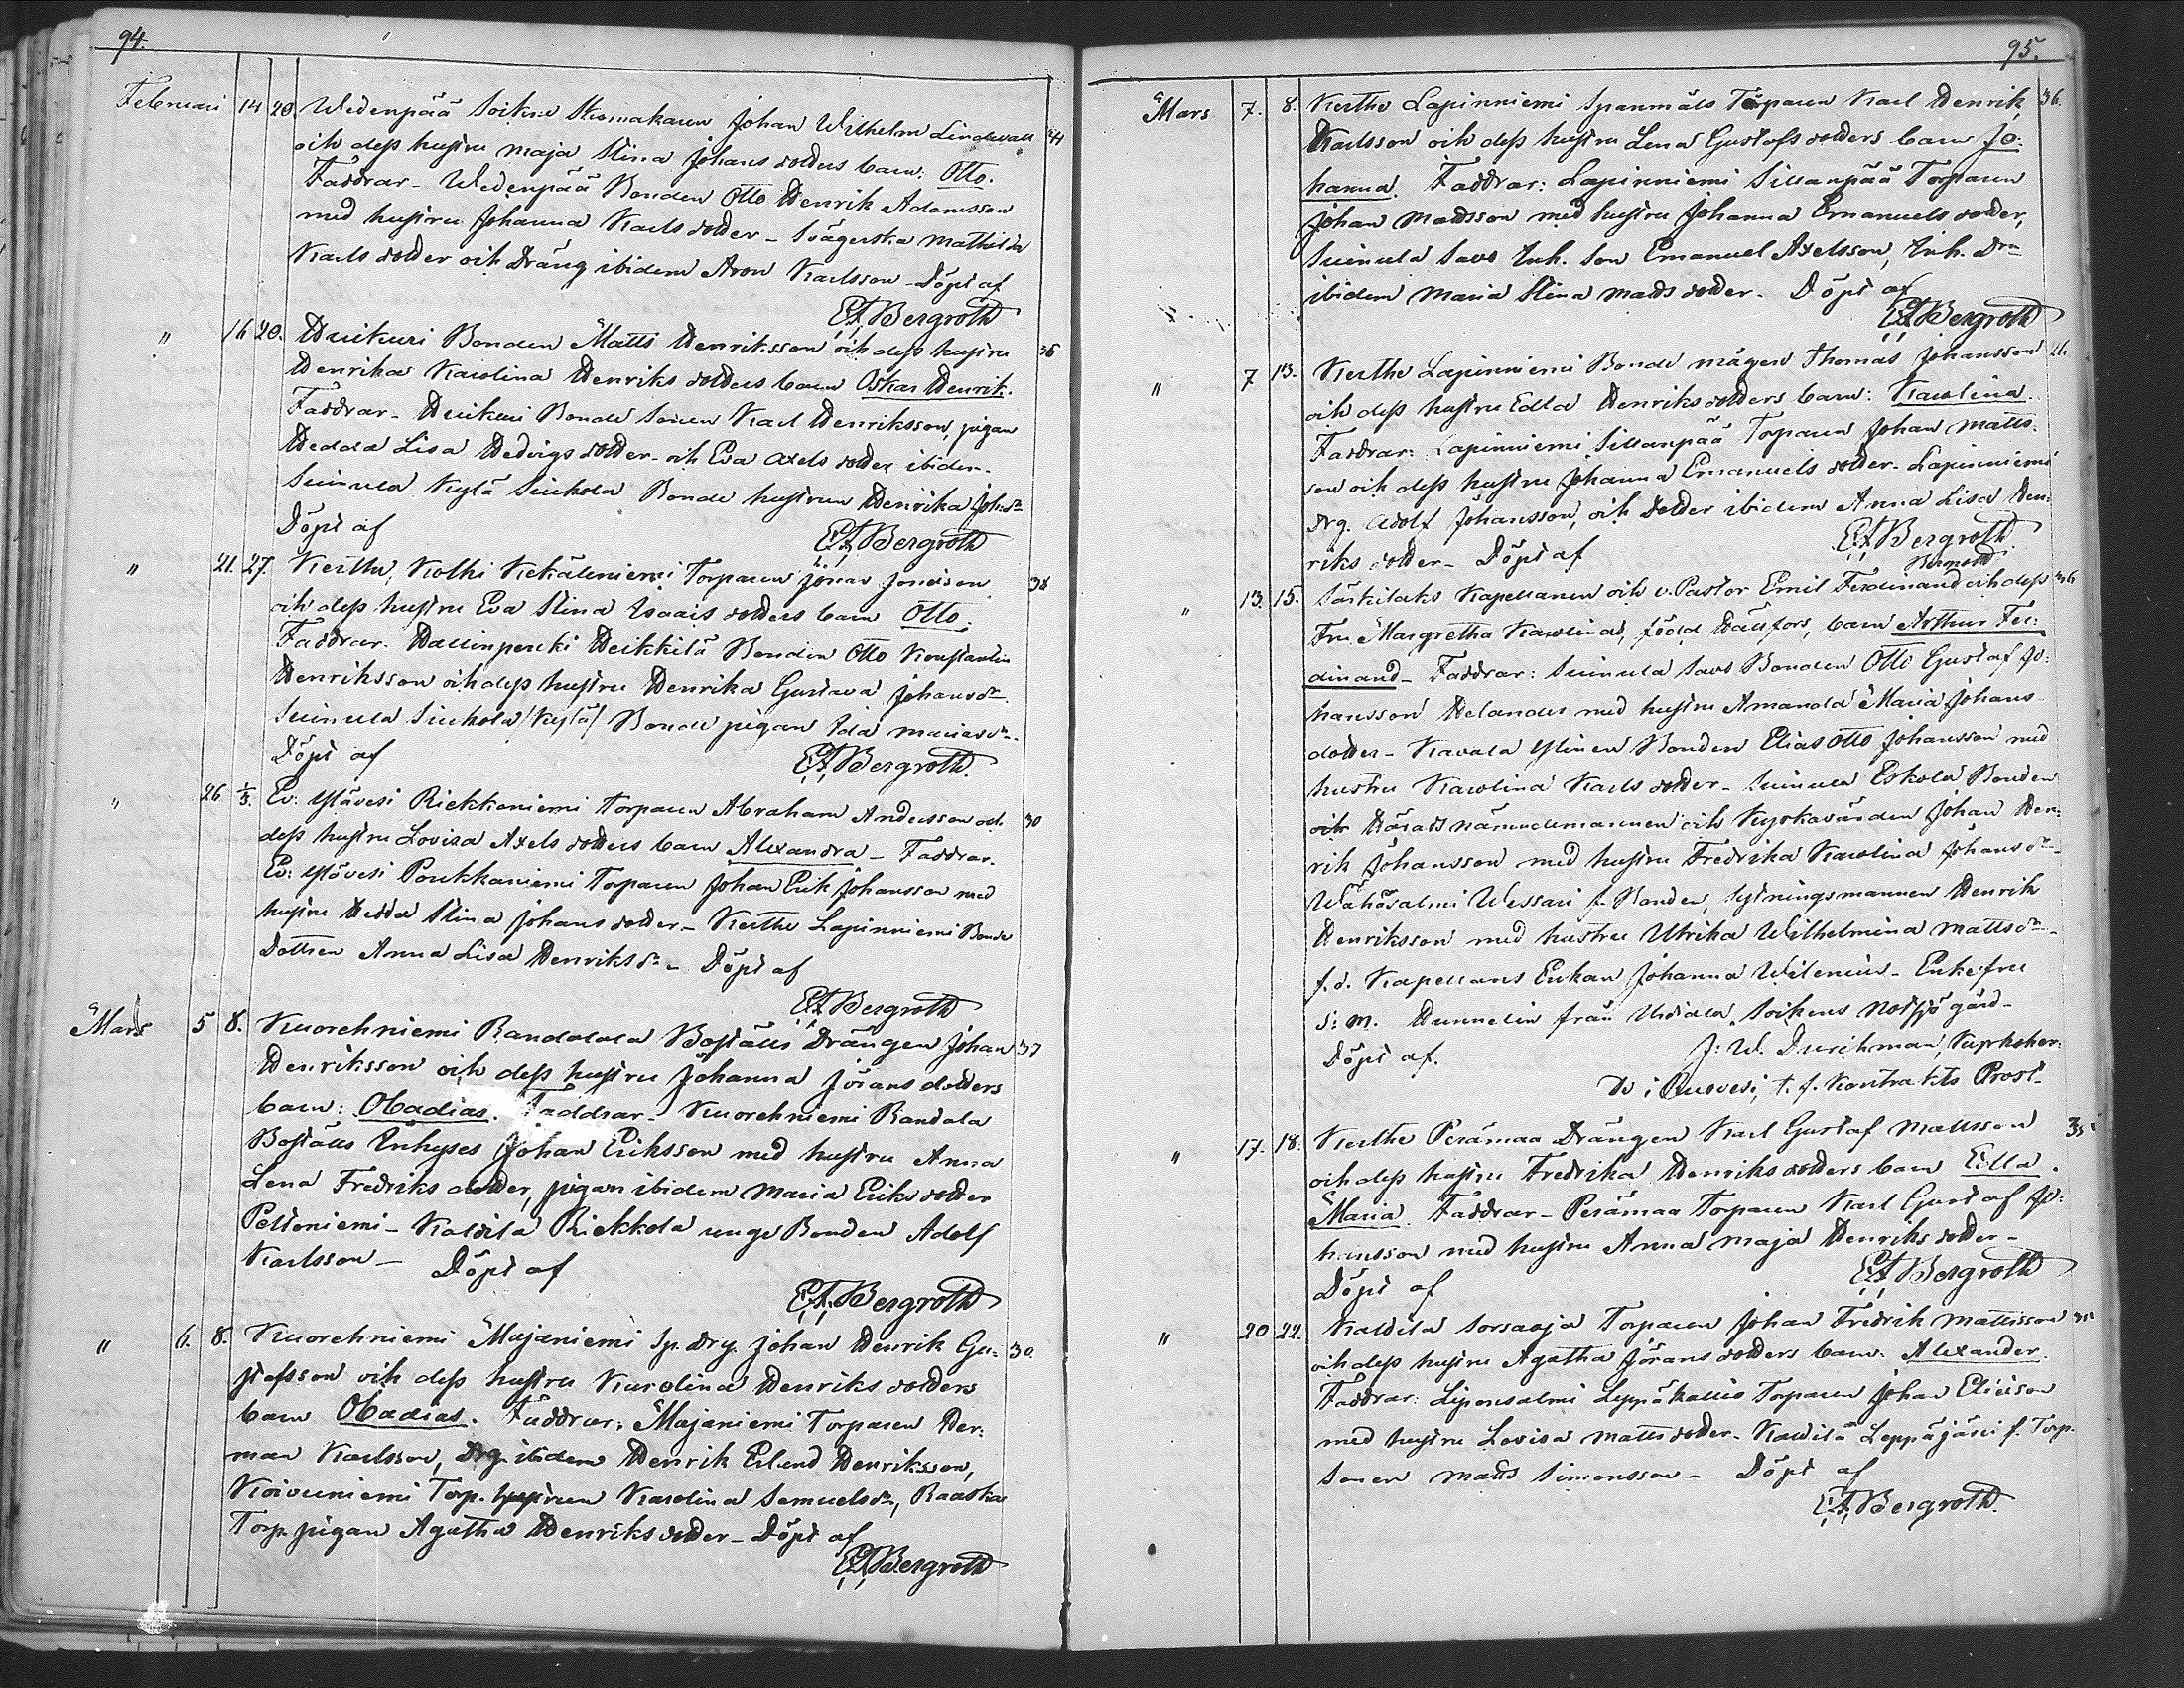 94.
Februari 14 20 Wedenpää Sockne Skomakaren Johan Wilhelm Lindewall 41
och dess hustru Maja Stina Johans dotters barn: Otto.
Faddrar - Wedenpää Bonden Otto Henrik Adamsson
med hustru Johanna Karls dotter - Svägerska Mathilda
Karls dotter och Dräng ibidem Aron Karlsson - Döpt af
E.F. Bergroth
" 16 20. Huikuri Bonden Matts Henriksson och dess hustru 36
Henrika Karolina Henriks dotters barn Oskar Henrik.
Faddrar - Huikuri Bonde Sonen Karl Henriksson, pigan
Hedda Lisa Hedvigs dotter - och Eva Axels dotter ibidem.
Suinula Kylä Siukola Bonde hustrun Henrika Johsdr
Döpt af
E.F. Bergroth
" 21. 27. Kerttu, Kolhi Kekäleniemi Torparen Jonas Jonasson 38
och dess hustru Eva Stina Isaais dotters barn Otto.
Faddrar. Hallinpenki Heikkilä Bonden Otto Konstantin
Henriksson och dess hustru Henrika Gustava Johansdr
Suinula Siukola /Kylä/ Bonde pigan Ida Mariasdr.
Döpt af
E.F. Bergroth.
" 26 1/3. Ev: Ylävesi Riekkoniemi Torparen Abraham Andersson och 30
dess hustru Lovisa Axels dotters barn Alexandra - Faddrar.
Ev: Ylövesi Poukkaniemi Torparen Johan Erik Johansson med
hustru Hedda Stina Johans dotter - Kerttu Lapinniemi Bonde
Dottren Anna Lisa Henriksdr - Döpt af
E.F. Bergroth
Mars 5 8. Kuorehniemi Randalala Boställs Drängen Johan 37
Henriksson och dess hustru Johanna Jörans dotters
barn: Obadias. Faddrar - Kuorehniemi Randala
Boställs Inhyses Johan Eriksson med hustru Anna
Lena Fredriks dotter, pigan ibidem Maria Eriks dotter
Peltoniemi - Kaldila Riekkola unge Bonden Adolf
Karlsson - Döpt af
E.F. Bergroth
" 6. 8. Kuorehniemi Majaniemi Sp. drg. Johan Henrik Gu- 30.
stafsson och dess hustru Karolina Henriks dotters
barn Obadias. Faddrar: Majaniemi Torparen Her:
man Karlsson, Drg. ibidem Henrik Erlund Henriksson,
Koivuniemi Torp. hustrun Karolina Samuelsdr, Raaska
Torp. pigan Agatha Henriks dotter - Döpt af
E.F. Bergroth
95.
Mars 7. 8. Kerttu Lapinniemi Spanmåls Torparen Karl Henrik 36.
Karlsson och dess hustru Lena Gustafs dotters barn Jo:
hanna. Faddrar: Lapinniemi Sillanpää Torparen
Johan Madsson med hustru Johanna Emanuels dotter,
Suinula Savo Inh. Son Emanuel Axelsson, Inh. Drn
ibidem Maria Stina Mads dotter. Döpt af
E.F. Bergroth
" 7 13. Kerttu Lapinniemi Bonde mågen Thomas Johansson 21.
och dess hustru Edla Henriks dotters barn: Karolina.
Faddrar: Lapinniemi Sillanpää Torparen Johan Matts:
son och dess hustru Johanna Emanuels dotter - Lapinniemi
drg. Adolf Johansson, och Dotter ibidem Anna Lisa Hen:
riks dotter - Döpt af
E.F. Bergroth
Bergroth
" 13. 15. Särkilaks Kapellanen och v. Pastor Emil Ferdinand och dess 36
Fru Margretha Karolina, född Hällfors, barn Arthur Fer:
dinand - Faddrar: Suinula Savo Bonden Otto Gustaf Jo:
hansson Helander med hustru Amanda Maria Johans
dotter - Kavala Ylinen Bonden Elias Otto Johansson med
hustru Karolina Karls dotter - Suinula Eskola Bonden
och Häradsnämndemannen och Kyrkovärden Johan Hen:
rik Johansson med hustru Fredrika Karolina Johansdr -
Wähäsalmi Wessari f. Bonden, Sytningsmannen Henrik
Henriksson med hustru Ulrika Wilhelmina Mattsdr -
f.d. Kapellans Enkan Johanna Wilenius - Enkefru
S: M. Hummelin från Urdiala Sockens Notsjö gård -
Döpt af. J: W. Durchman, Kyrkoher:
de i Ruovesi, t. f. Kontrakts Prost -
" 17. 18. Kerttu Perämaa Drängen Karl Gustaf Mattsson 35
och dess hustru Fredrika Henriks dotters barn Edla
Maria. Faddrar - Perämaa Torparen Karl Gustaf Jo:
hansson med hustru Anna Maja Henriks dotter -
Döpt af
E.F. Bergroth
" 20 22. Kaldila Sorsaoja Torparen Johan Fredrik Mattsson
och dess hustru Agatha Jörans dotters barn. Alexander.
Faddrar: Liponsalmi Leppäkallio Torparen Johan Eliasson
med hustru Lovisa Matts dotter - Kaldila Leppäjärvi f. Torp.
Sonen Matts Simonsson - Döpt af
E.F. Bergroth.